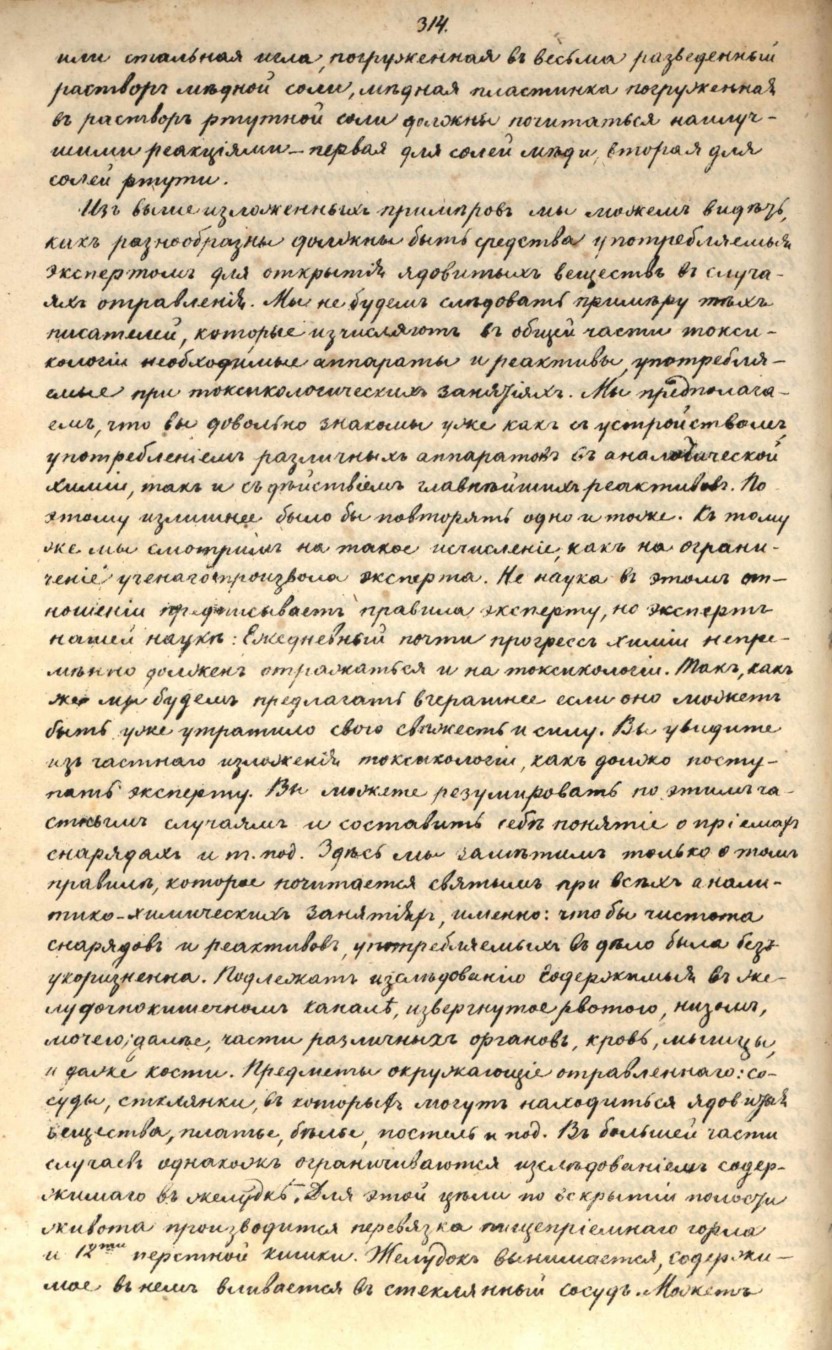 314.
или стальная игла, погруженная въ весьма разведенный
растворъ мѣдной соли, мѣдная пластинка погруженная
въ растворъ ртутной соли должны почитаться наилуч-
шими реакціями – первая для солей мѣди, вторая для
солей ртути.
Изъ выше изложенныхъ примѣровъ мы можемъ видѣть,
какъ разнообразны должны быть средства употребляемыя
экспертомъ для открытія ядовитыхъ веществъ въ случа-
яхъ отравленія. Мы не будемъ слѣдовать примѣру тѣхъ
писателей, которые изчисляютъ въ общей части токси-
кологіи необходимые аппараты и реактивы, употребля-
емые при токсикологическихъ занятіяхъ. Мы предполага-
емъ, что вы довольно знакомы уже какъ съ устройствомъ,
употребленіемъ различныхъ аппаратовъ въ аналитической
химіи, такъ и съ дѣйствіемъ главнѣйшихъ реактивовъ. По
этому излишнее было бы повторять одно и тоже. Къ тому
же мы смотримъ на такое исчисленіе, какъ на ограни-
ченіе ученаго произвола эксперта. Не наука въ этомъ от-
ношеніи предписываетъ правила эксперту, но экспертъ
нашей наукѣ: Ежедневный почти прогрессъ химіи непре-
мѣнно долженъ отражаться и на токсикологіи. Такъ, какъ
же мы будемъ предлагать вчерашнее если оно можетъ
быть уже утратило свою свѣжесть и силу. Вы увидите
изъ частнаго изложенія токсикологіи, какъ должно посту-
пать эксперту. Вы можете резумировать по этимъ ча-
стнымъ случаямъ и составить себѣ понятіе о пріемахъ
снарядахъ и т. под. Здѣсь мы замѣтимъ только о томъ
правилѣ, которое почитается святымъ при всѣхъ анали-
тико-химическихъ занятіяхъ, именно: чтобы чистота
снарядовъ и реактивовъ, употребляемыхъ въ дѣло была безъ
укоризненна. Подлежатъ изслѣдованію содержимыя въ же-
лудочнокишечномъ каналѣ, извергнутое рвотою, низомъ,
мочею; далѣе, части различныхъ органовъ, кровь, мышцы,
и даже кости. Предметы окружающіе отравленнаго: со-
суды, стклянки, въ которыхъ могутъ находиться ядовитыя
вещества, платье, бѣлье, постель и под. Въ большей части
случаевъ однакожъ ограничиваются изслѣдованіемъ содер-
жимаго въ желудкѣ. Для этой цѣли по вскрытіи полости
живота производится перевязка пищепріемнаго горла
и 12ти перстной кишки. Желудокъ вынимается, содержи-
мое въ немъ вливается въ стеклянный сосудъ. Можетъ